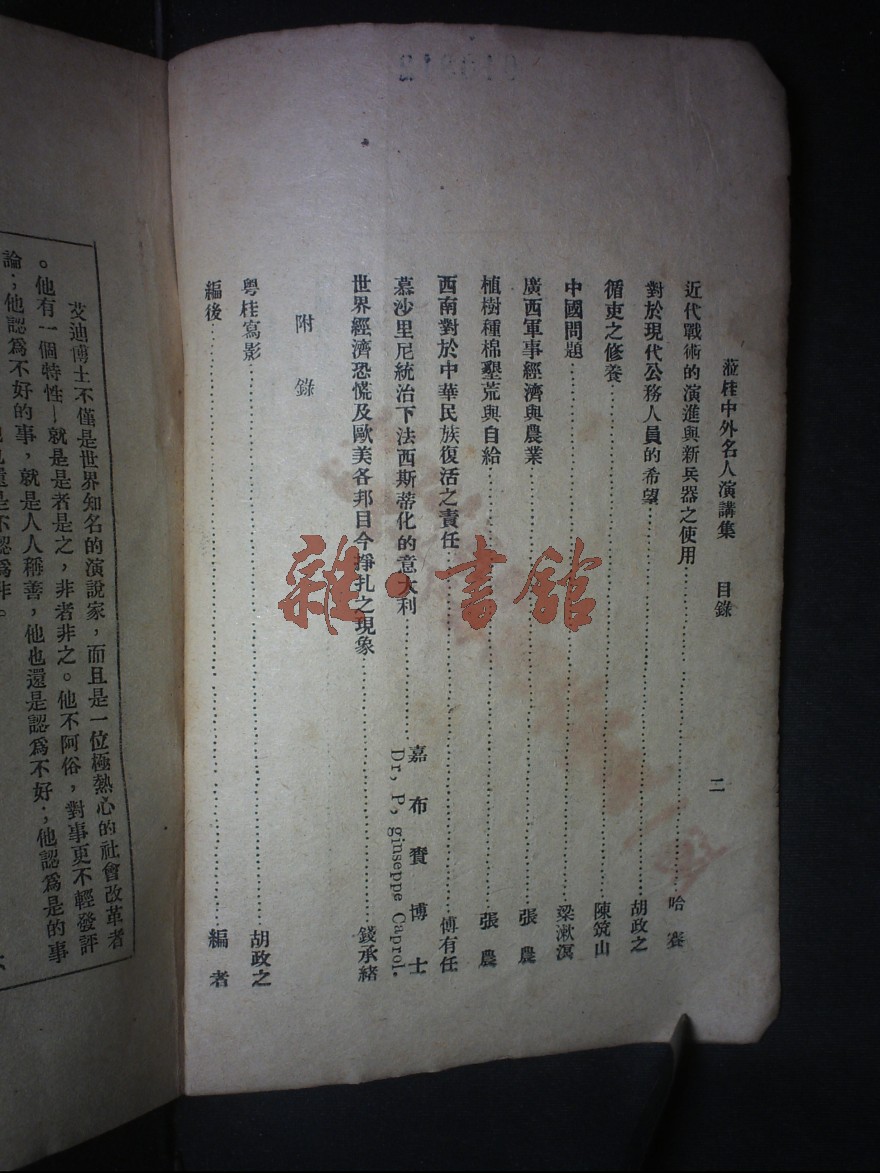 蒞桂中外名人演講集　目錄　二
近代戰術的演進與新兵器之使用……哈賽
對於現代公務人員的希望……胡政之
循吏之修養……陳筑山
中國問題……梁漱溟
廣西軍事經濟與農業……張農
植樹種棉墾荒與自給……張農
西南對於中華民族復活之責任……傅有任
慕沙里尼統治下法西斯蒂化的意大利……嘉布賚博士
Dr, P, giuseppe Caprol.
世界經濟恐慌及歐美各邦目今掙扎之現象……錢承緒
附錄
粵桂寫影……胡政之
編後……編者
艾迪博士不僅是世界知名的演說家，而且是一位極熱心的社會改革者
。他有一個特性—就是是者是之，非者非之。他不阿俗，對事更不輕發評
論；他認為不好的事，就是人人稱善，他也還是認為不好；他認為是的事
雜·書館